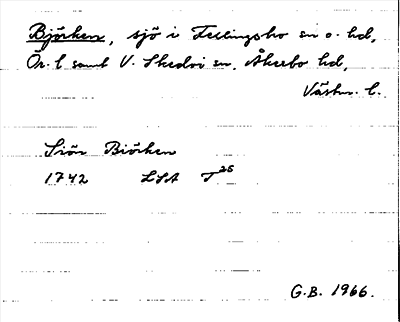 Björken, sjö i Fellingsbro sn o. hd,
Ör. l samt V. Skedvi sn, Åkerbo hd,
Västm. l.
Siön Biörken
1742 LSA T 25
G.B. 1966.